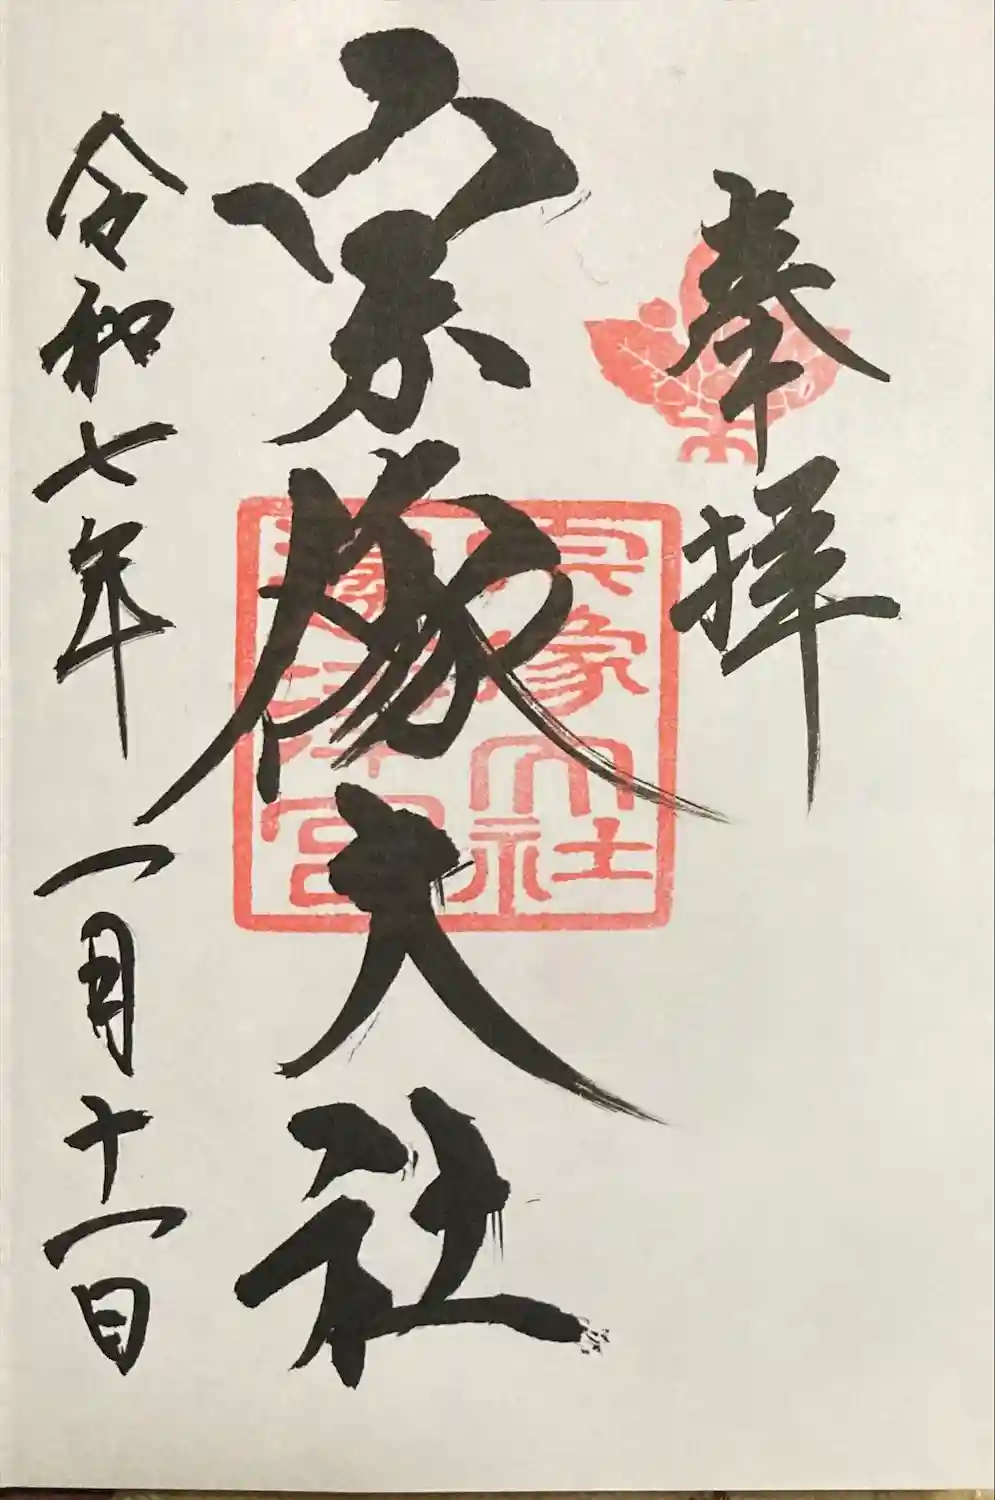 奉拝
宗像大社
宗像大社
邊津宮
令和七年一月十一日